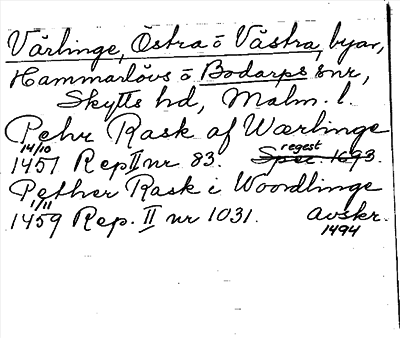 Värlinge, Östra o Västra, byar,
Hammarlövs o Bodarps snr,
Skytts hd, Malm. l.
Pehr Rask af Wærlinge
14/10 1457 Rep II nr 83. regest Spec 1693.
Pether Rask i Woordlinge
1/11 1459 Rep. II nr 1031. Avskr. 1494